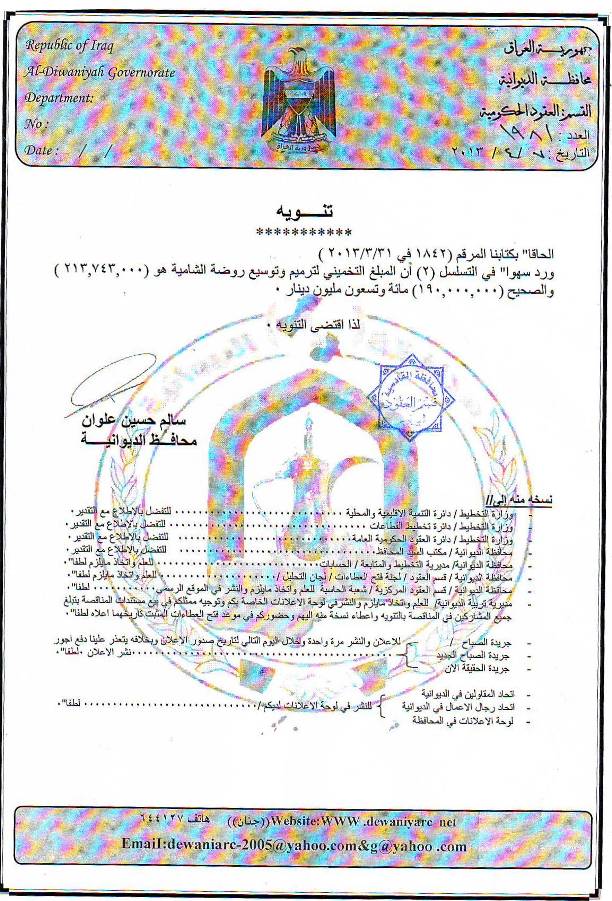 Republic of Iraq
Al-Diwaniyah Governorate
Department:
No :
Date :     /     /
جمهورية العراق
محافظة الديوانية
القسم: العقود الحكومية
العدد : ١٩٨١
التاريخ : ٧ / ٤ / ٢٠١٣
تنـــويه
***********
الحاقا" بكتابنا المرقم (١٨٤٢ في ٢٠١٣/٣/٣١ )
ورد سهوا" في التسلسل (٢) أن المبلغ التخميني لترميم وتوسيع روضة الشامية هو (٢١٣,٧٤٣,٠٠٠ )
والصحيح (١٩٠,٠٠٠,٠٠٠) مائة وتسعون مليون دينار ٠
لذا اقتضى التنويه ٠
محافظة القادسية
قسم العقود
سالم حسين علوان
محافظ الديوانيـــة
نسخه منه إلى//
- وزارة التخطيط / دائرة التنمية الاقليمية والمحلية .................... للتفضل بالإطلاع مع التقدير٠
- وزارة التخطيط / دائرة تخطيط القطاعات .................... للتفضل بالإطلاع مع التقدير٠
- وزارة التخطيط / دائرة العقود الحكومية العامة .................... للتفضل بالإطلاع مع التقدير٠
- محافظة الديوانية/ مكتب السيد المحافظ .................... للتفضل بالإطلاع مع التقدير٠
- محافظة الديوانية/ مديرية التخطيط والمتابعة / الحسابات .................... للعلم واتخاذ مايلزم لطفا"٠
- محافظة الديوانية / قسم العقود / لجنة فتح العطاءات / لجان التحليل /........... للعلم واتخاذ مايلزم لطفا"٠
- محافظة الديوانية / قسم العقود المركزية / شعبة الحاسبة للعلم واتخاذ مايلزم والنشر في الموقع الرسمي .......... لطفا"٠
- مديرية تربية الديوانية/ للعلم واتخاذ مايلزم والنشر في لوحة الاعلانات الخاصة بكم وتوجيه ممثلكم في بيع مستندات المناقصة بتبليغ
جميع المشاركين في المناقصة بالتنويه واعطاء نسخة منه اليهم وحضوركم في موعد فتح العطاءات المثبت تاريخهما اعلاه لطفا"٠
- جريدة الصباح / للاعلان والنشر مرة واحدة وخلال اليوم التالي لتاريخ صدور الاعلان وبخلافه يتعذر علينا دفع اجور
- جريدة الصباح الجديد .................... نشر الاعلان لطفا"٠
- جريدة الحقيقة الان
- اتحاد المقاولين في الديوانية
- اتحاد رجال الاعمال في الديوانية للنشر في لوحة الاعلانات لديكم /.................... لطفا"٠
- لوحة الاعلانات في المحافظة
Website:WWW .dewaniyarc net((جنان)) هاتف ٦٤٤١٢٧
Email:dewaniarc-2005@yahoo.com&g@yahoo .com